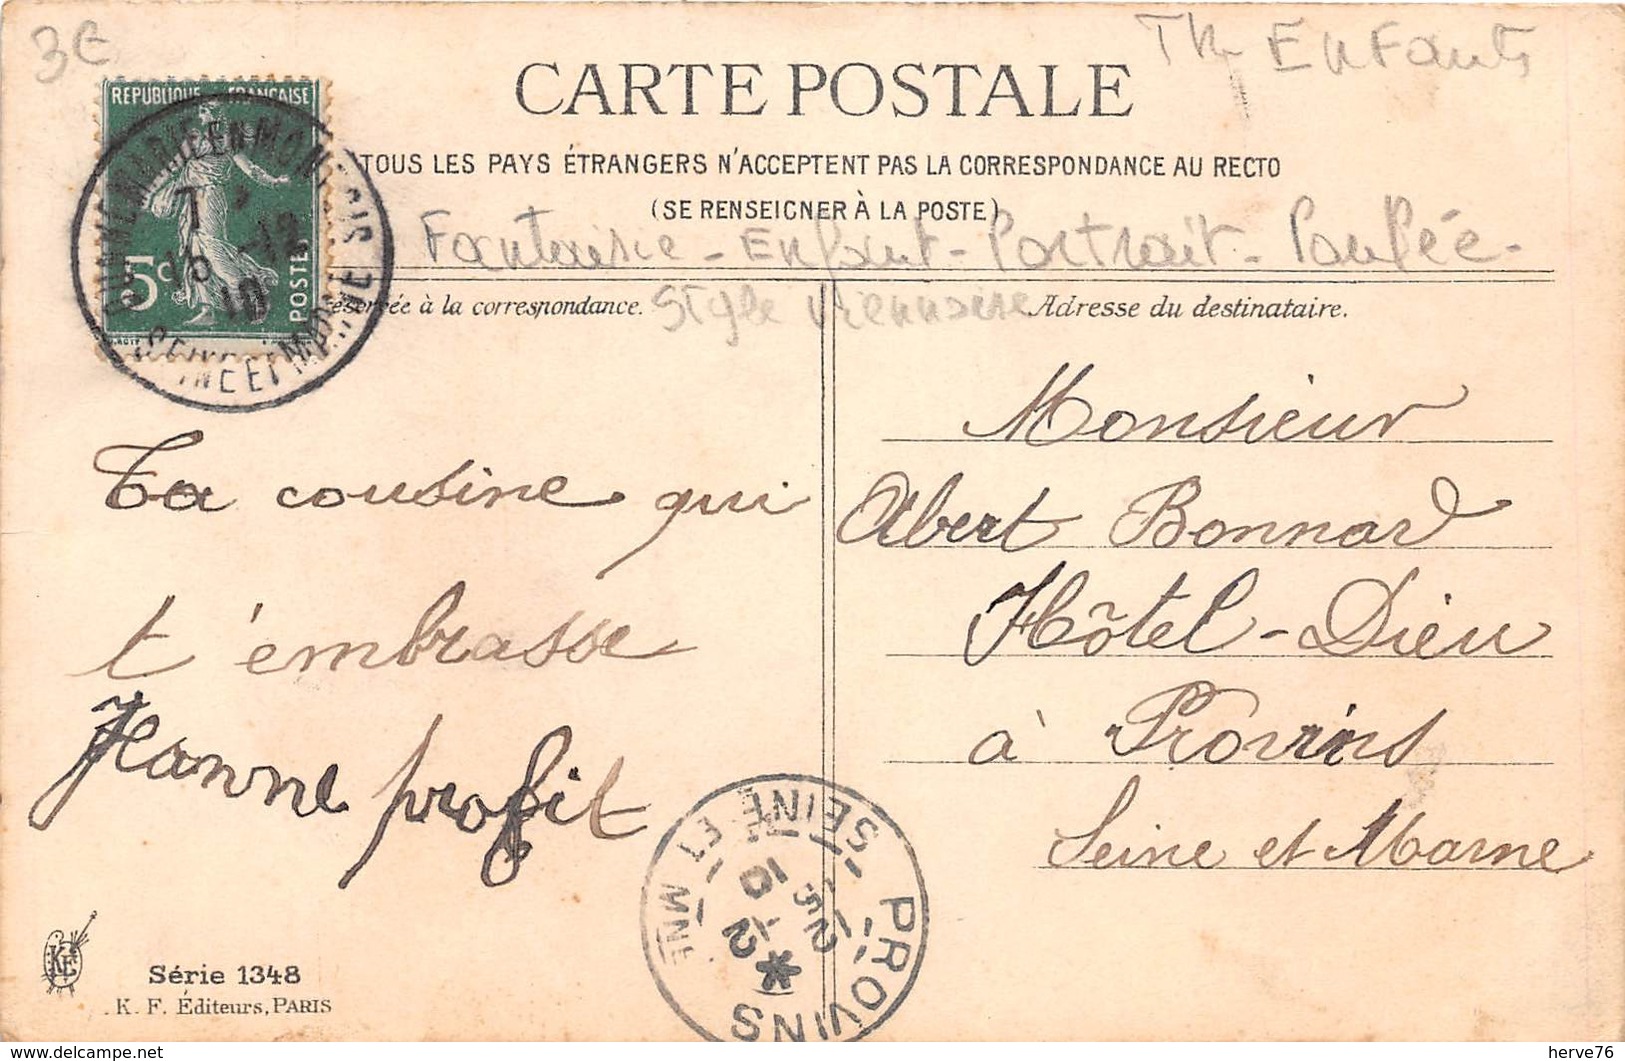 3€
Th Enfants
REPUBLIQUE FRANÇAISE
5c
POSTES
DONNEMARIE EN MONTOIS
7
10 -12
10
SEINE ET MARNE
CARTE POSTALE
TOUS LES PAYS ÉTRANGERS N'ACCEPTENT PAS LA CORRESPONDANCE AU RECTO
(SE RENSEIGNER À LA POSTE)
Fantaisie - Enfant - Portrait - Poupée -
Style Viennoise
réservée à la correspondance.
Adresse du destinataire.
Ta cousine qui
t'embrasse
Jeanne profit
Monsieur
Albert Bonnard
Hôtel-Dieu
à Provins
Seine et Marne
PROVINS
SEINE ET MNE
10 -12
KF
Série 1348
K. F. Éditeurs, PARIS
https://www.delcampe.net
herve76